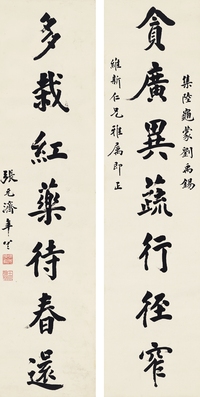 集陸龜蒙劉禹錫
貪廣異蔬行徑窄
維新仁兄雅屬即正
多栽紅藥待春還
張元濟年八